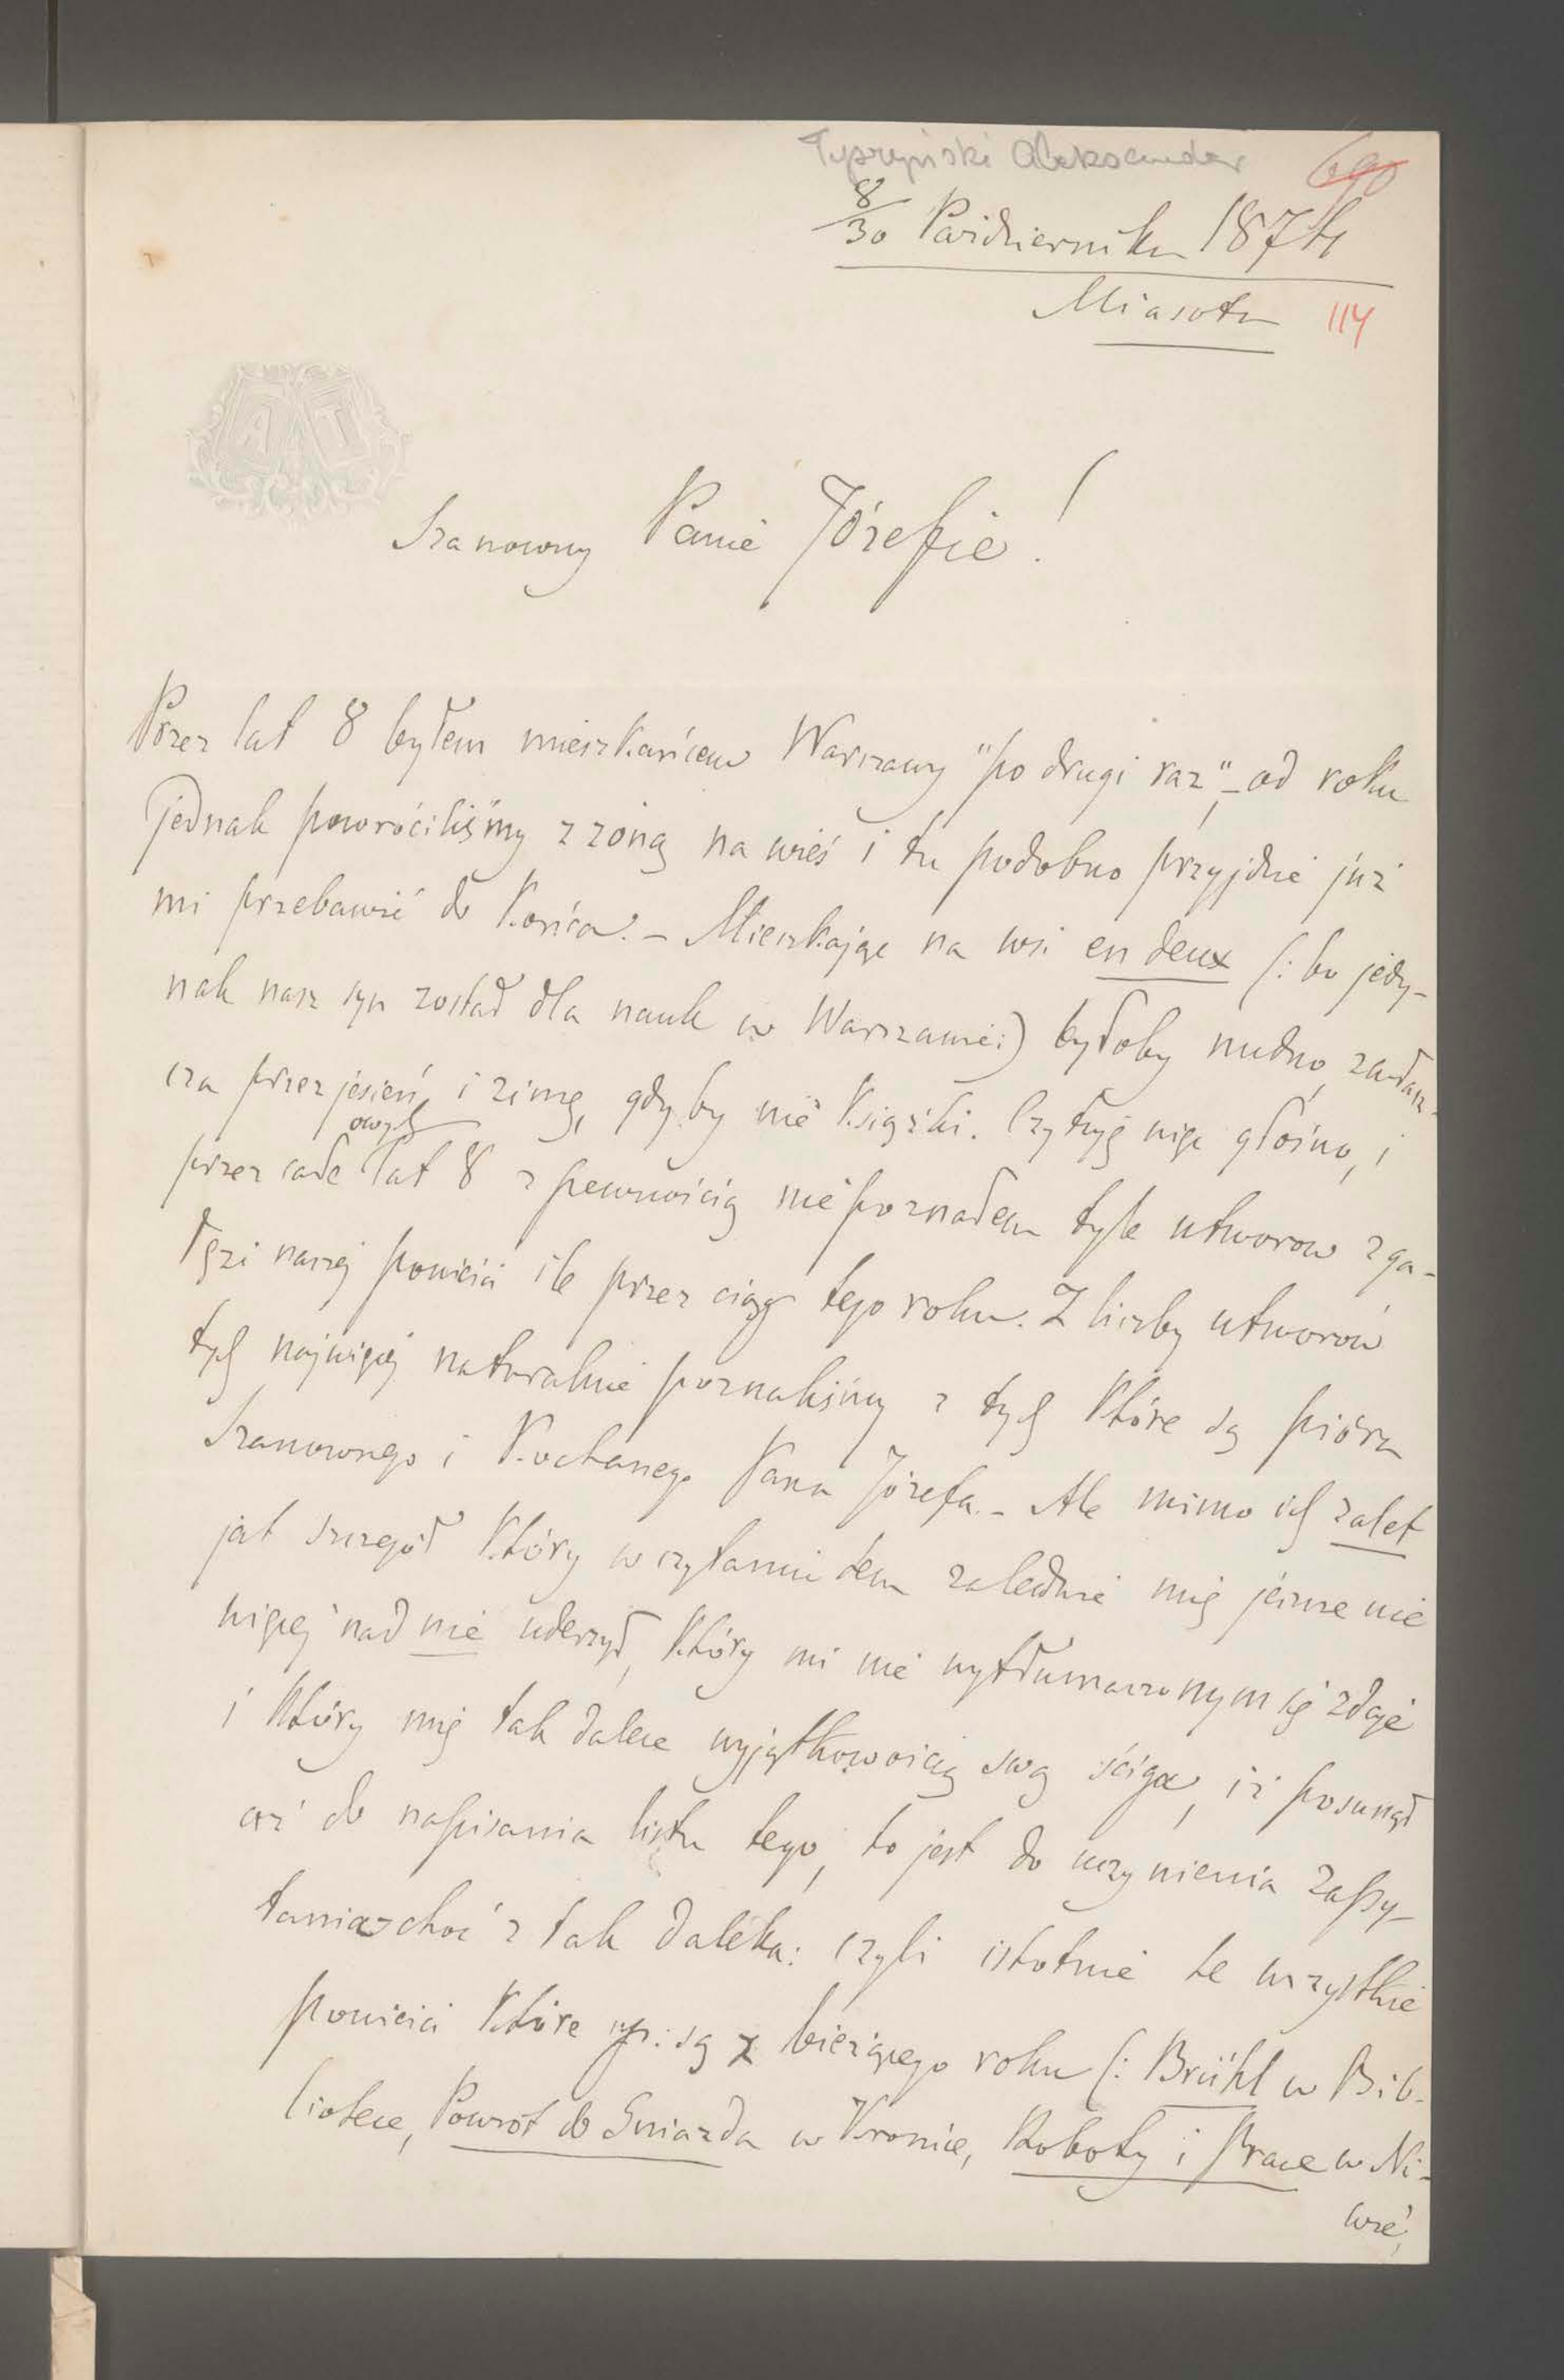 Tyszyński Aleksander
690
8/30 Października 1874
Miasota
114
AT
Szanowny Panie Józefie!
Przez lat 8 byłem mieszkańcem Warszawy "po drugi raz" – od roku
jednak powróciliśmy z żoną na wieś i tu podobno przyjdzie już
mi przebawić do końca. – Mieszkając na wsi en deux (: bo jedy-
nak nasz syn został dla nauk w Warszawie:) byłoby nudno, zwłasz-
cza przez jesień i zimę, gdyby nie książki. Czytuję więc głośno, i
przez całe owych lat 8 z pewnością nie poznałem tyle utworow z ga-
łęzi naszej powieści ile przez ciąg tego roku. Z liczby utworów
tych najwięcej naturalnie poznaliśmy z tych które są pióra
Szanownego i Kochanego Pana Józefa. – Ale mimo ich zalet
jest szczegół który w czytaniu tem zaledwie mię jeszcze nie
więcej nad nie uderzył, który mi nie wytłumaczonym się zdaje
i który mię tak dalece wyjątkowością swą ściga, iż posunął
aż do napisania listu tego, to jest do uczynienia zapy-
tania choć z tak daleka: czyli istotnie te wszystkie
powieści które np: są z bieżącego roku (: Brühl w Bib-
liotece, Powrót do Gniazda w Kronice, Roboty i Prace w Ni-
wie,